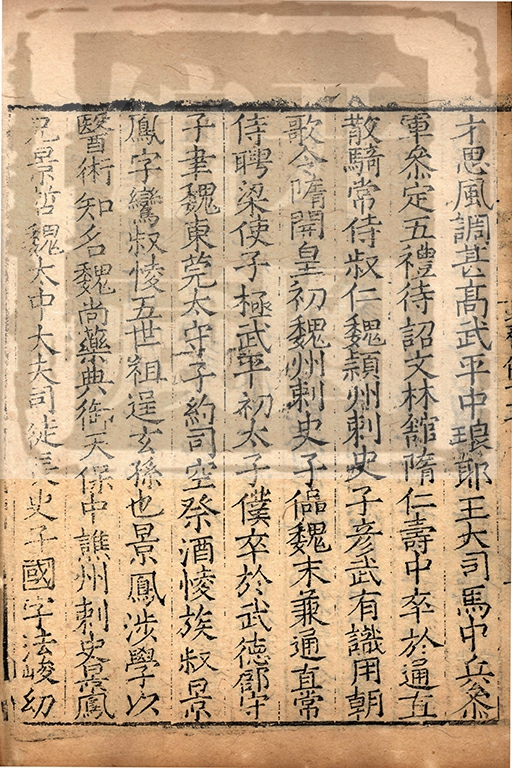 才思風調甚高武平中瑯郎王大司馬中兵叅
軍叅定五禮待詔文林舘隋仁壽中卒於通直
散騎常侍叔仁魏潁州刺史子彦武有識用朝
歌令隋開皇初魏州刺史子偘魏末兼通直常
侍聘梁使子極武平初太子僕卒於武德郡守
子聿魏東莞太守子約司空祭酒㥄族叔景
鳳字鸞叔㥄五世祖逞玄孫也景鳳涉學以
醫術知名魏尚藥典御天保中譙州刺史景鳳
兄景哲魏太中大夫司徒長史子國字法峻幼